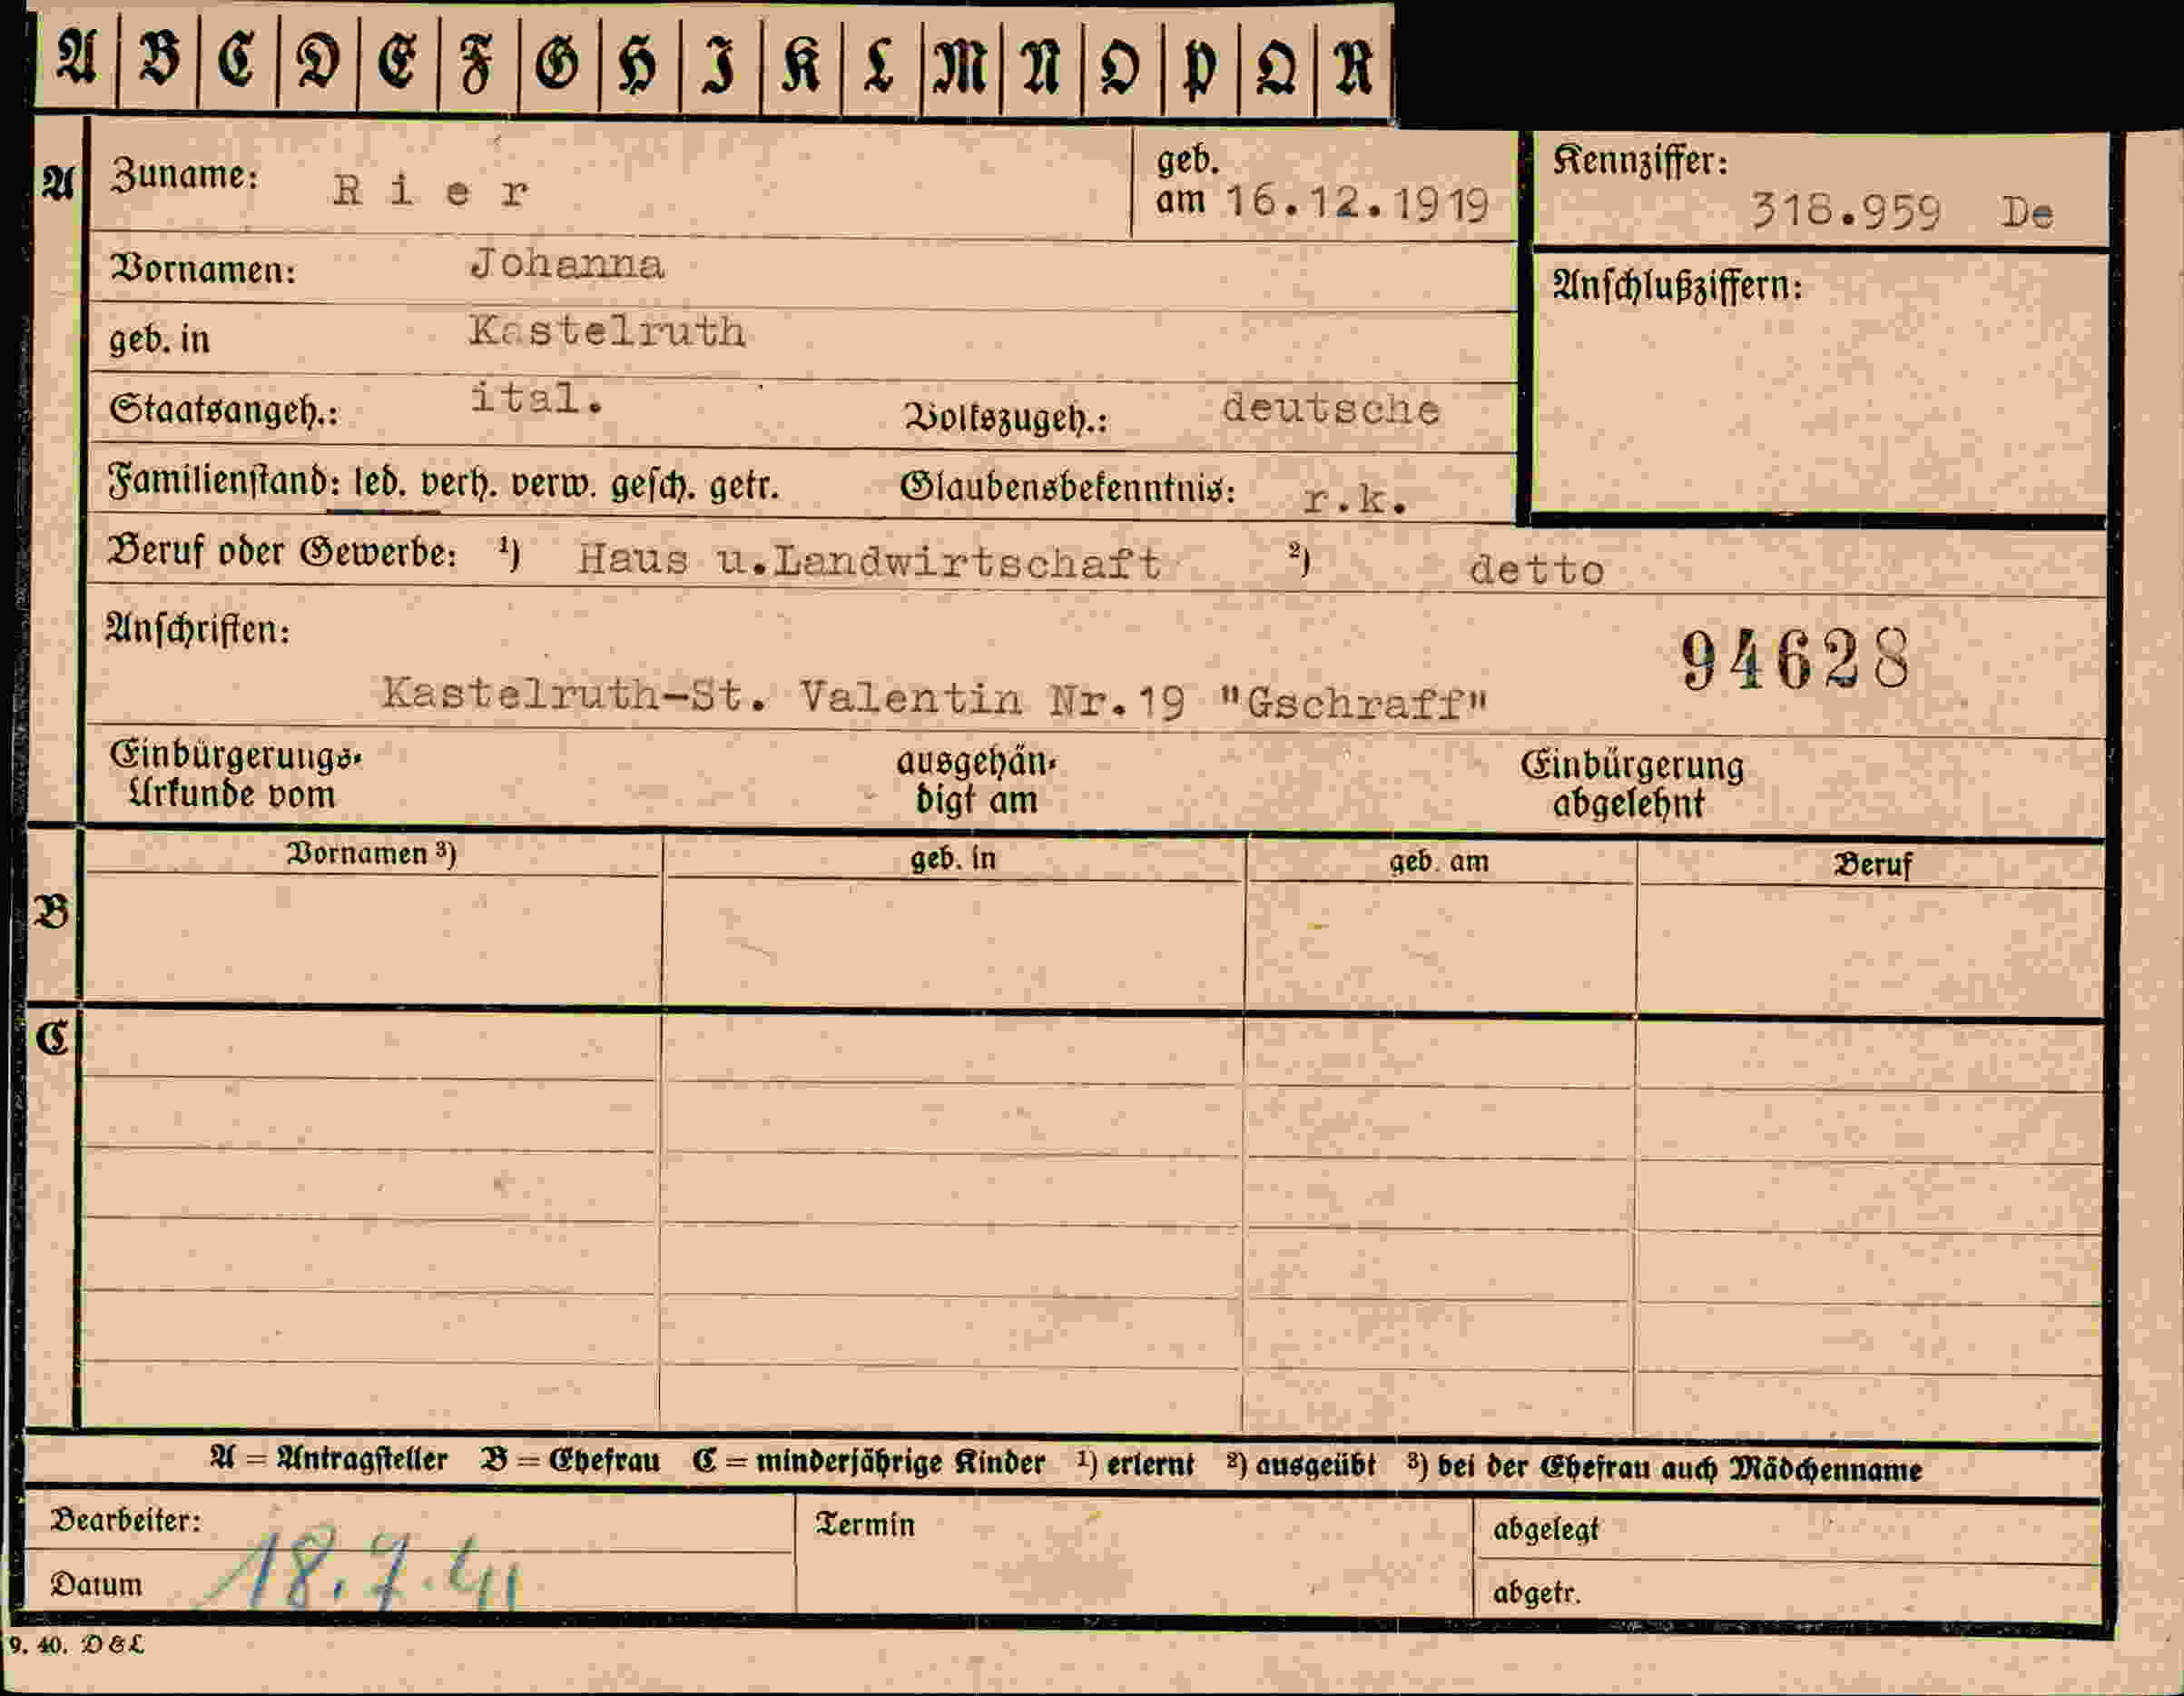 A B C D E F G H I K L M N O P Q R
A Zuname: Rier geb. am 16.12.1919 Kennziffer: 318.959 De
Vornamen: Johanna Anschlußziffern:
geb. in Kastelruth
Staatsangeh.: ital. Volkszugeh.: deutsche
Familienstand: led. verh. verw. gesch. getr. Glaubensbekenntnis: r.k.
Beruf oder Gewerbe: 1) Haus u.Landwirtschaft 2) detto
Anschriften: 94628
Kastelruth-St. Valentin Nr.19 "Gschraff"
Einbürgerungs- ausgehän- Einbürgerung
Urkunde vom digt am abgelehnt
Vornamen 3) geb. in geb. am Beruf
B
C
A = Antragsteller B = Ehefrau C = minderjährige Kinder 1) erlernt 2) ausgeübt 3) bei der Ehefrau auch Mädchenname
Bearbeiter: Termin abgelegt
Datum 18.7.41 abgetr.
9. 40. D & L